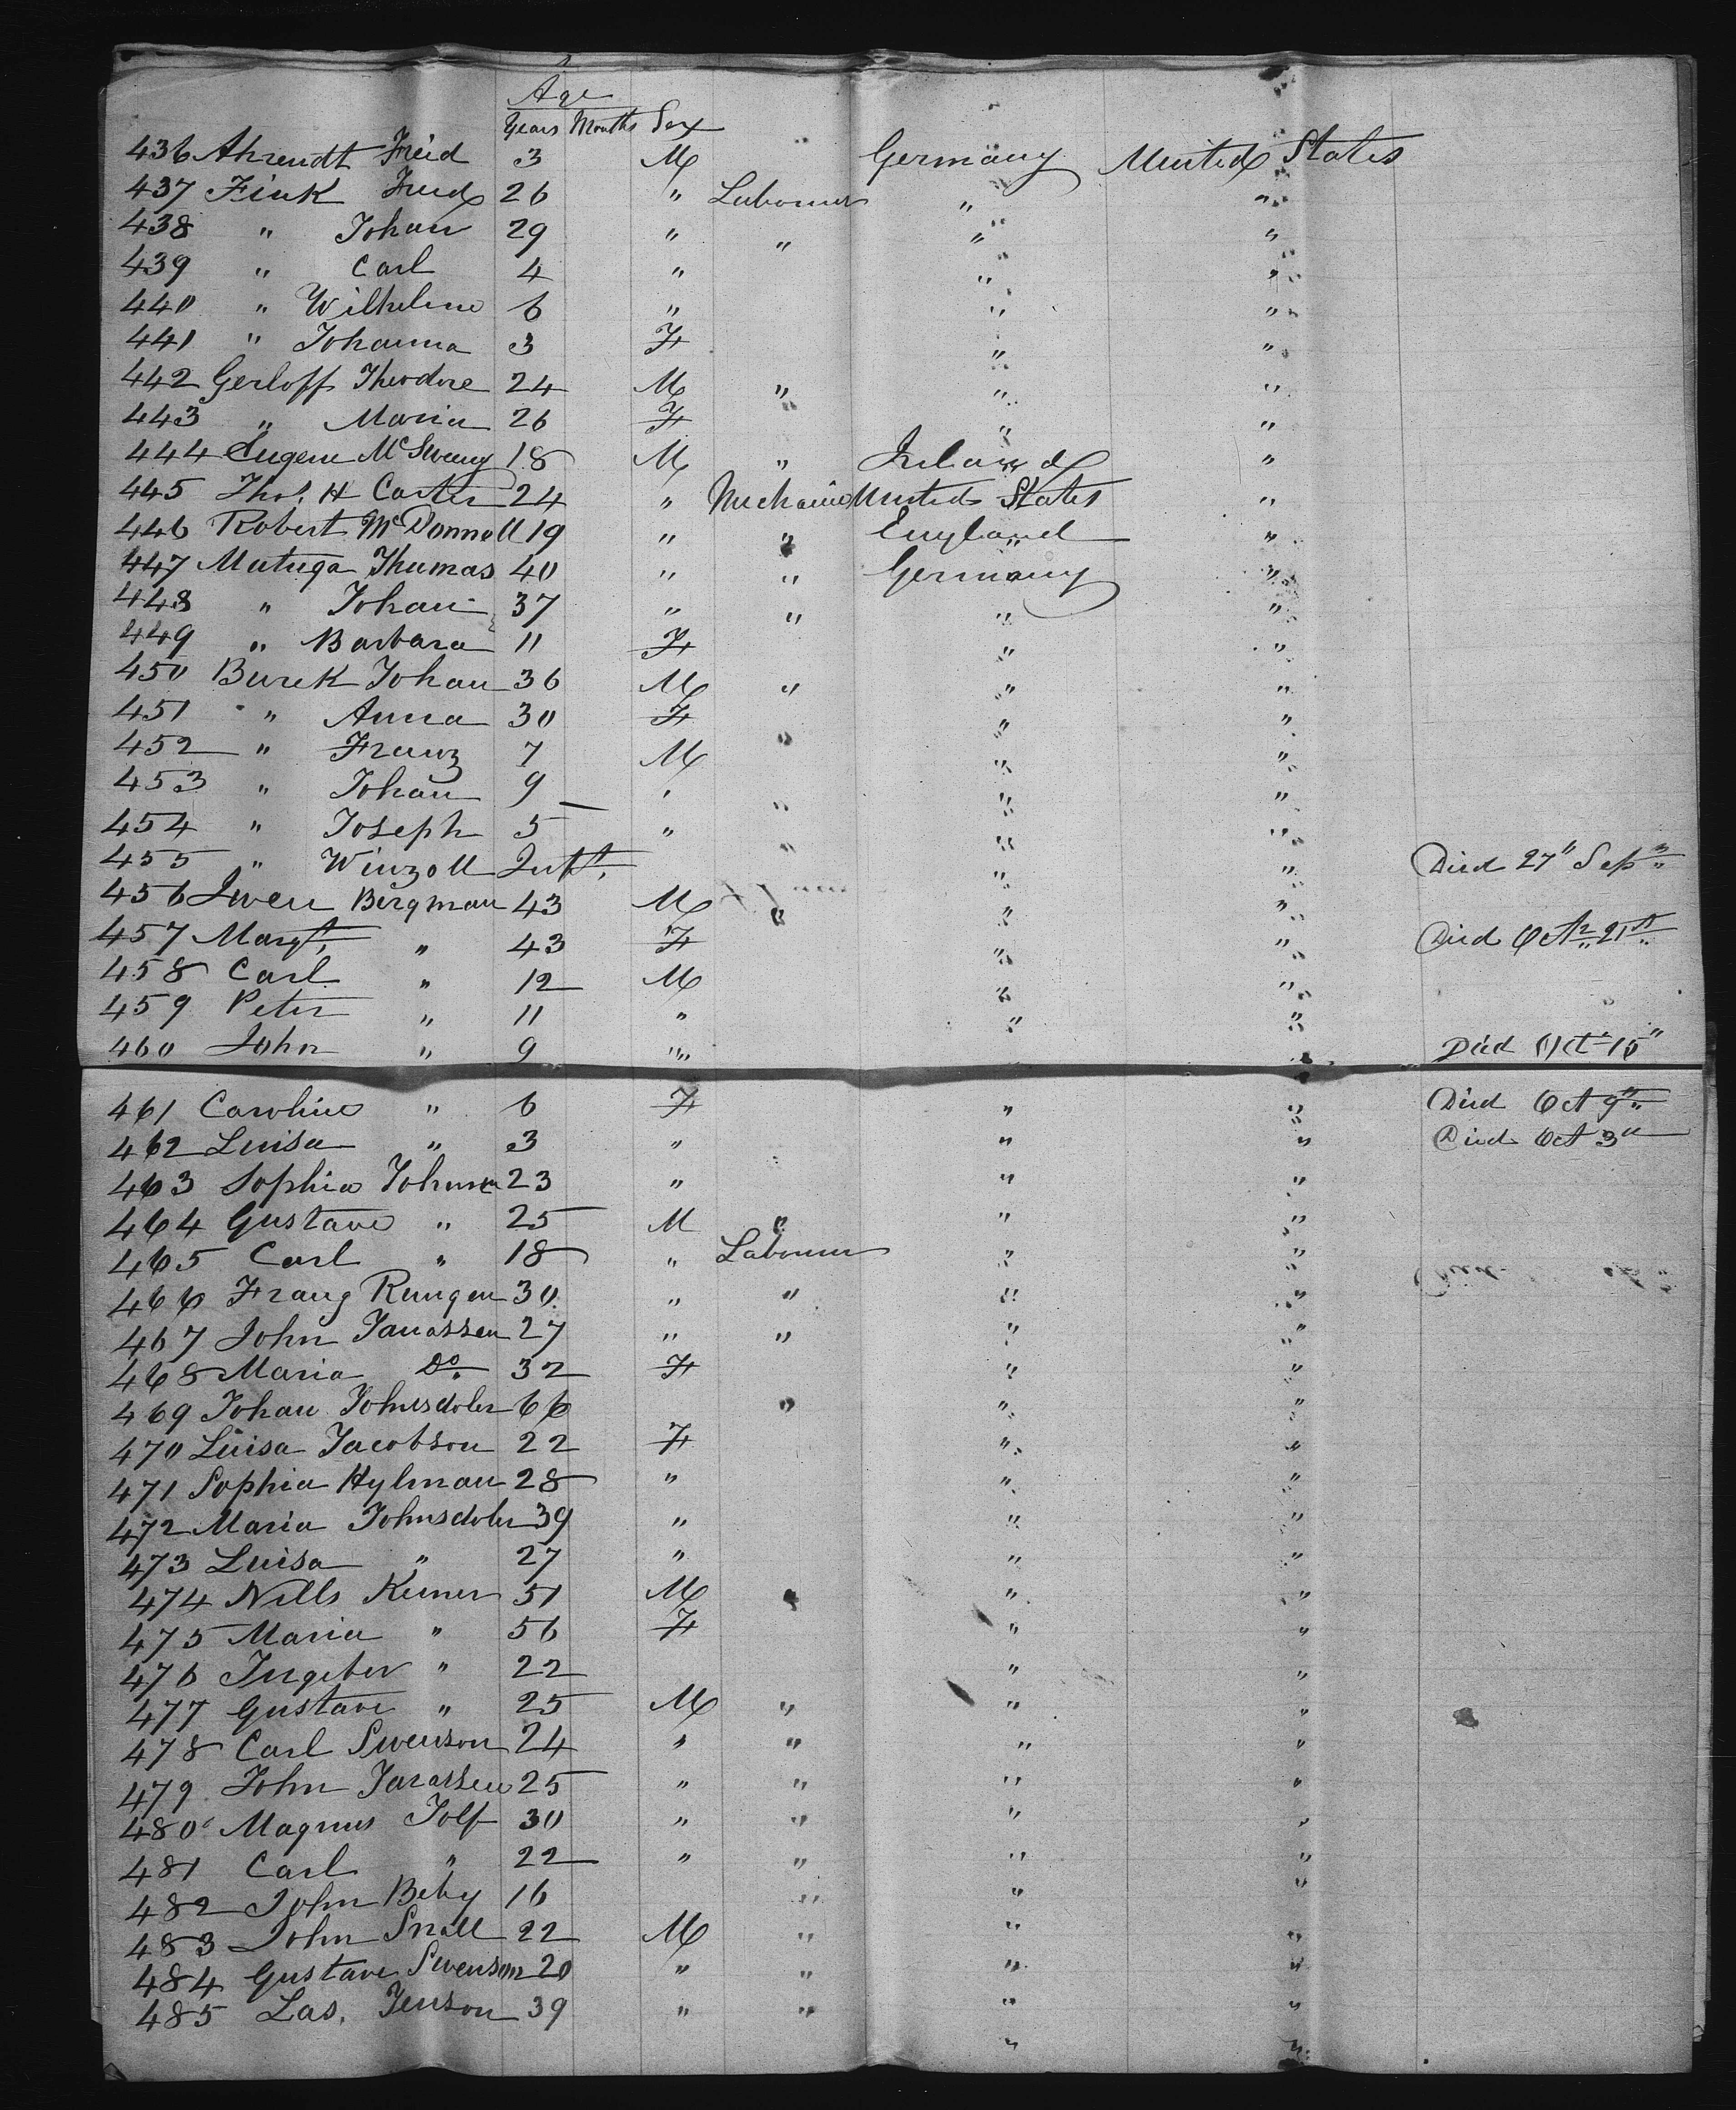 Age
Years Months Sex
436 Ahrendt Freid 3 M Germany United States
437 Fink Fred 26 " Labourer " "
438 " Johan 29 " " " "
439 " Carl 4 " " "
440 " Wilhelm 6 " " "
441 " Johanna 3 F " "
442 Gerloff Theodore 24 M " " "
443 " Maria 26 F " "
444 Eugene McSweeny 18 M " Ireland "
445 Thos. H Carter 24 " Mechanic United States "
446 Robert McDonnell 19 " " England "
447 Matuga Thumas 40 " " Germany "
448 " Johan 37 " " " "
449 " Barbara 11 F " "
450 Burek Johan 36 M " " "
451 " Anna 30 F " "
452 " Franz 7 M " " "
453 " Johan 9 " " " "
454 " Joseph 5 " " " "
455 " Winzoll Inft. " " Died 27" Sep
456 Swen Bergman 43 M " " "
457 Margt. " 43 F " " Died Octr 21st
458 Carl " 12 M " "
459 Peter " 11 " " "
460 John " 9 " " Died Oct 15"
461 Caroline " 6 F " " Died Oct 9th
462 Luisa " 3 " " " Died Oct 3d
463 Sophia Johnson 23 " " "
464 Gustave " 25 M " " "
465 Carl " 18 " Labourer " "
466 Franz Rungen 30 " " " "
467 John Janassen 27 " " " "
468 Maria Do. 32 F " "
469 Johan Johnsdoler 66 " " "
470 Luisa Jacobson 22 F " "
471 Sophia Hylman 28 " " "
472 Maria Johnsdoler 39 " " "
473 Luisa " 27 " " "
474 Nills Kemer 51 M " " "
475 Maria " 56 F " "
476 Ingeber " 22 " "
477 Gustave " 25 M " " "
478 Carl Swenson 24 " " " "
479 John Jarassen 25 " " " "
480 Magnus Jolf 30 " " " "
481 Carl " 22 " " " "
482 John Beby 16 " " "
483 John Snall 22 M " " "
484 Gustave Swenson 20 " " " "
485 Las. Jenson 39 " " " "
" "